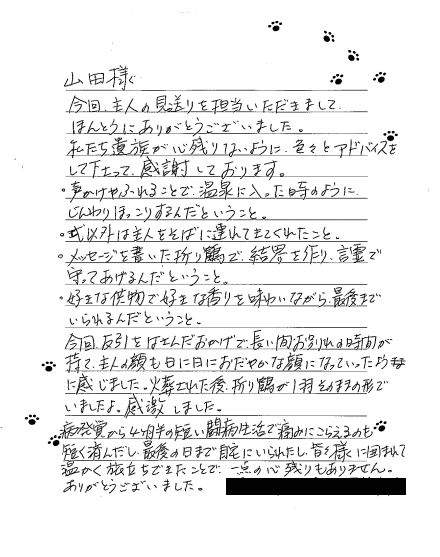 山田様へ
今回、主人の見送りを担当いただきまして、
ほんとうにありがとうございました。
私たち遺族が心残りないように、色々とアドバイスを
して下さって、感謝しております。
・声かけやふれることで、温泉に入った時のように、
じんわりほっこりするんだということ。
・式以外は主人をそばに連れてきてくれたこと。
・メッセージを書いた折り鶴で、結界を作り、言霊で
守ってあげるんだということ。
・好きな供物で好きな香りを味わいながら、最後まで
いられるんだということ。
今回、友引をはさんだおかげで、長い間お別れの時間が
持て、主人の顔も日に日におだやかな顔になっていったよう
に感じました。火葬された後、折り鶴が1羽そのままの形で
いましたよ。感激しました。
病発覚から4ヶ月半の短い闘病生活で痛みにこらえるのも
短く済んだし、最後の日まで自宅にいられたし、皆々様に囲まれて
温かく旅立ちできたことで、一点の心残りもありません。
ありがとうございました。